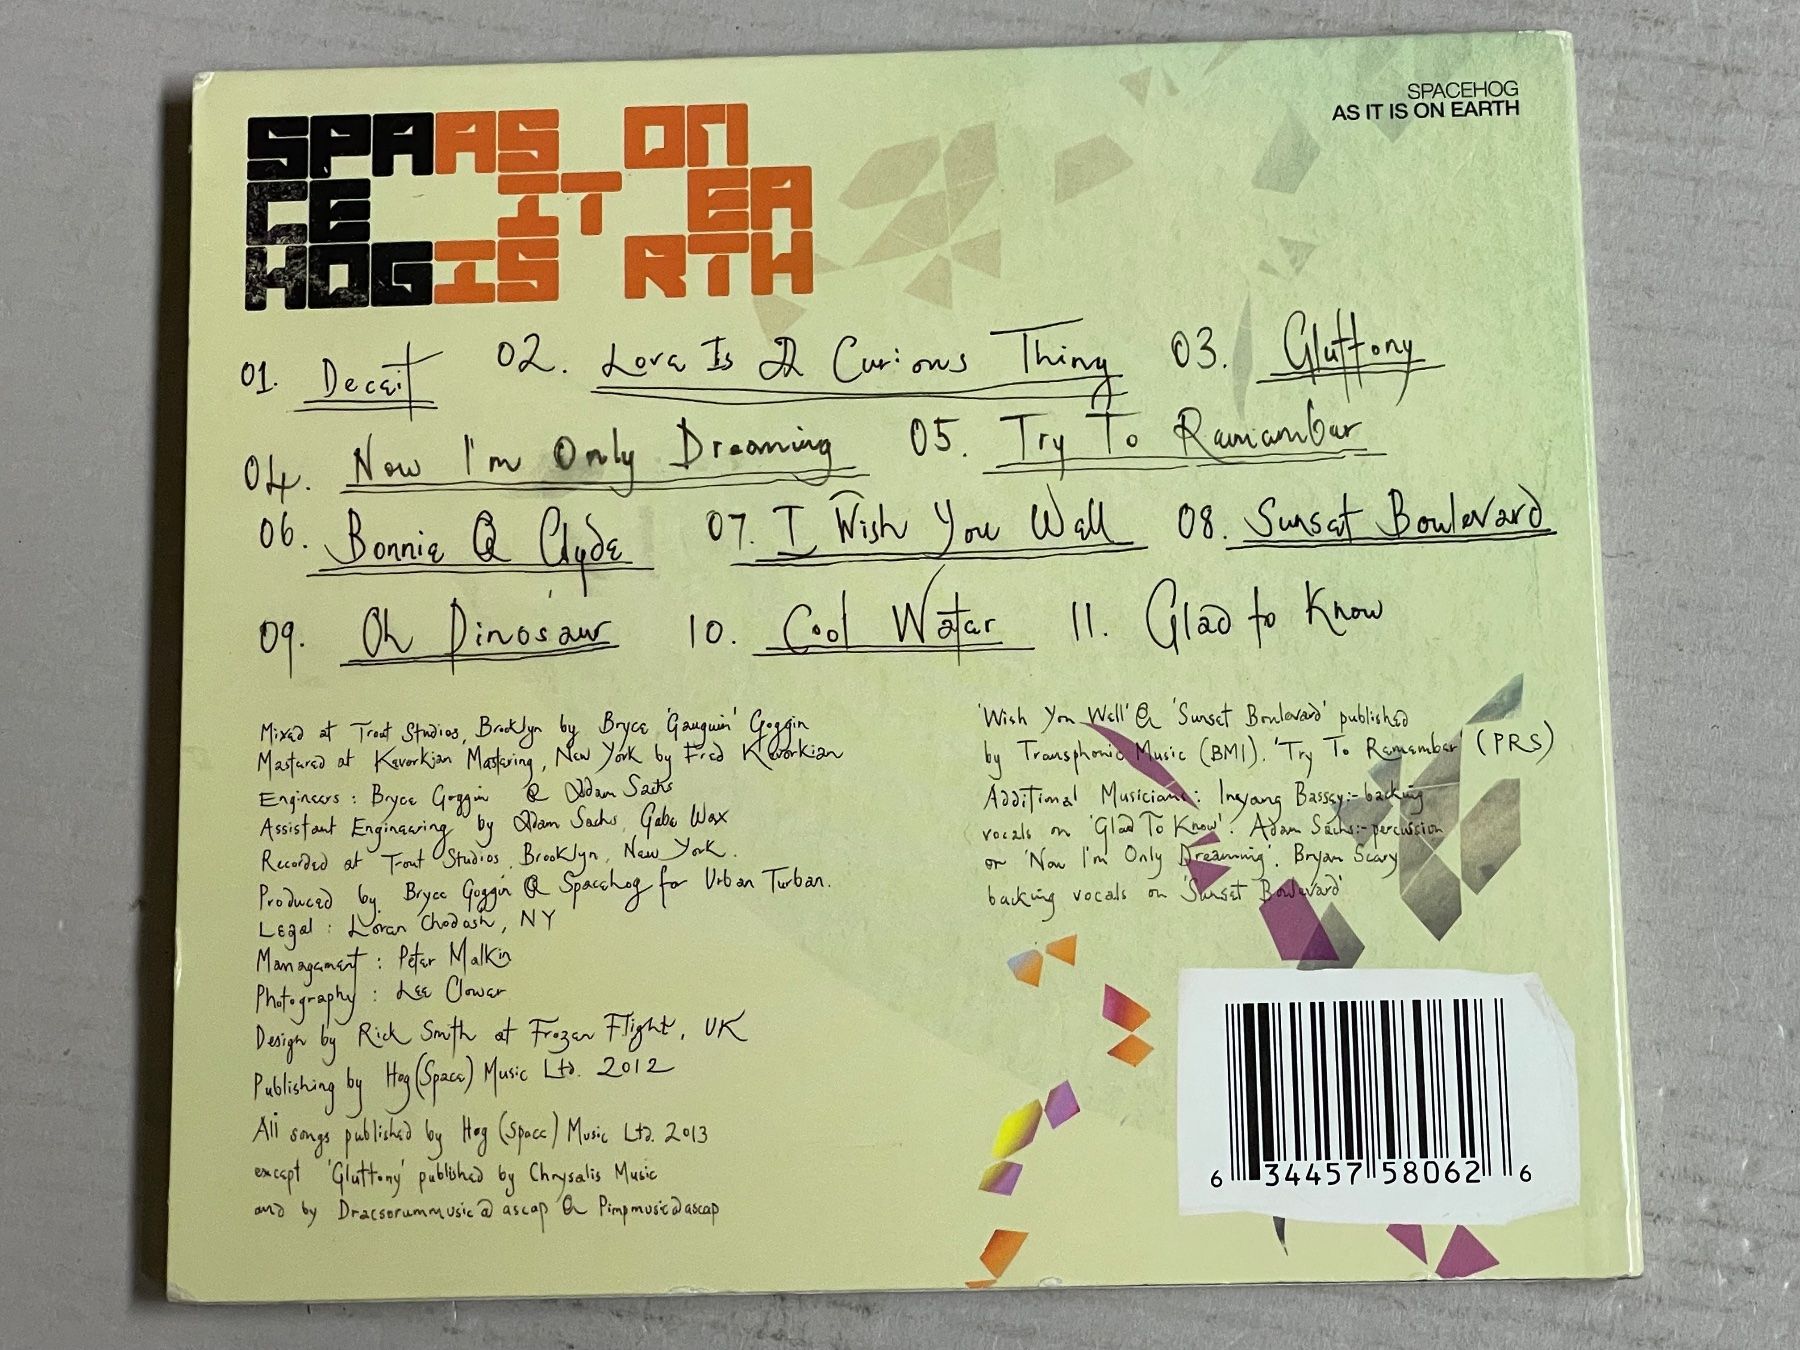 SPAAS ON
CE IT EA
HOGIS RTH
SPACEHOG
AS IT IS ON EARTH
01. Deceit 02. Love Is A Curious Thing 03. Gluttony
04. Now I'm Only Dreaming 05. Try To Remember
06. Bonnie & Clyde 07. I Wish You Well 08. Sunset Boulevard
09. Oh Dinosaur 10. Cool Water 11. Glad to Know
Mixed at Trout Studios, Brooklyn by Bryce 'Gauguin' Goggin
Mastered at Kevorkian Mastering, New York by Fred Kevorkian
Engineers: Bryce Goggin & Adam Sachs
Assistant Engineering by Adam Sachs, Gabe Wax
Recorded at Trout Studios, Brooklyn, New York.
Produced by Bryce Goggin & Spacehog for Urban Turban.
Legal: Loran Chodosh, NY
Management: Peter Malkin
Photography: Lee Clower
Design by Rick Smith at Frozen Flight, UK
Publishing by Hog (Space) Music Ltd. 2012
All songs published by Hog (Space) Music Ltd. 2013
except 'Gluttony' published by Chrysalis Music
and by Dracsorummusic@ascap & Pimpmusic@ascap
'Wish You Well' & 'Sunset Boulevard' published
by Transphonic Music (BMI). 'Try To Remember' (PRS)
Additional Musicians: Ineyang Bassey:- backing
vocals on 'Glad To Know'. Adam Sachs:- percussion
on 'Now I'm Only Dreaming'. Bryan Scary
backing vocals on 'Sunset Boulevard'
6 34457 58062 6